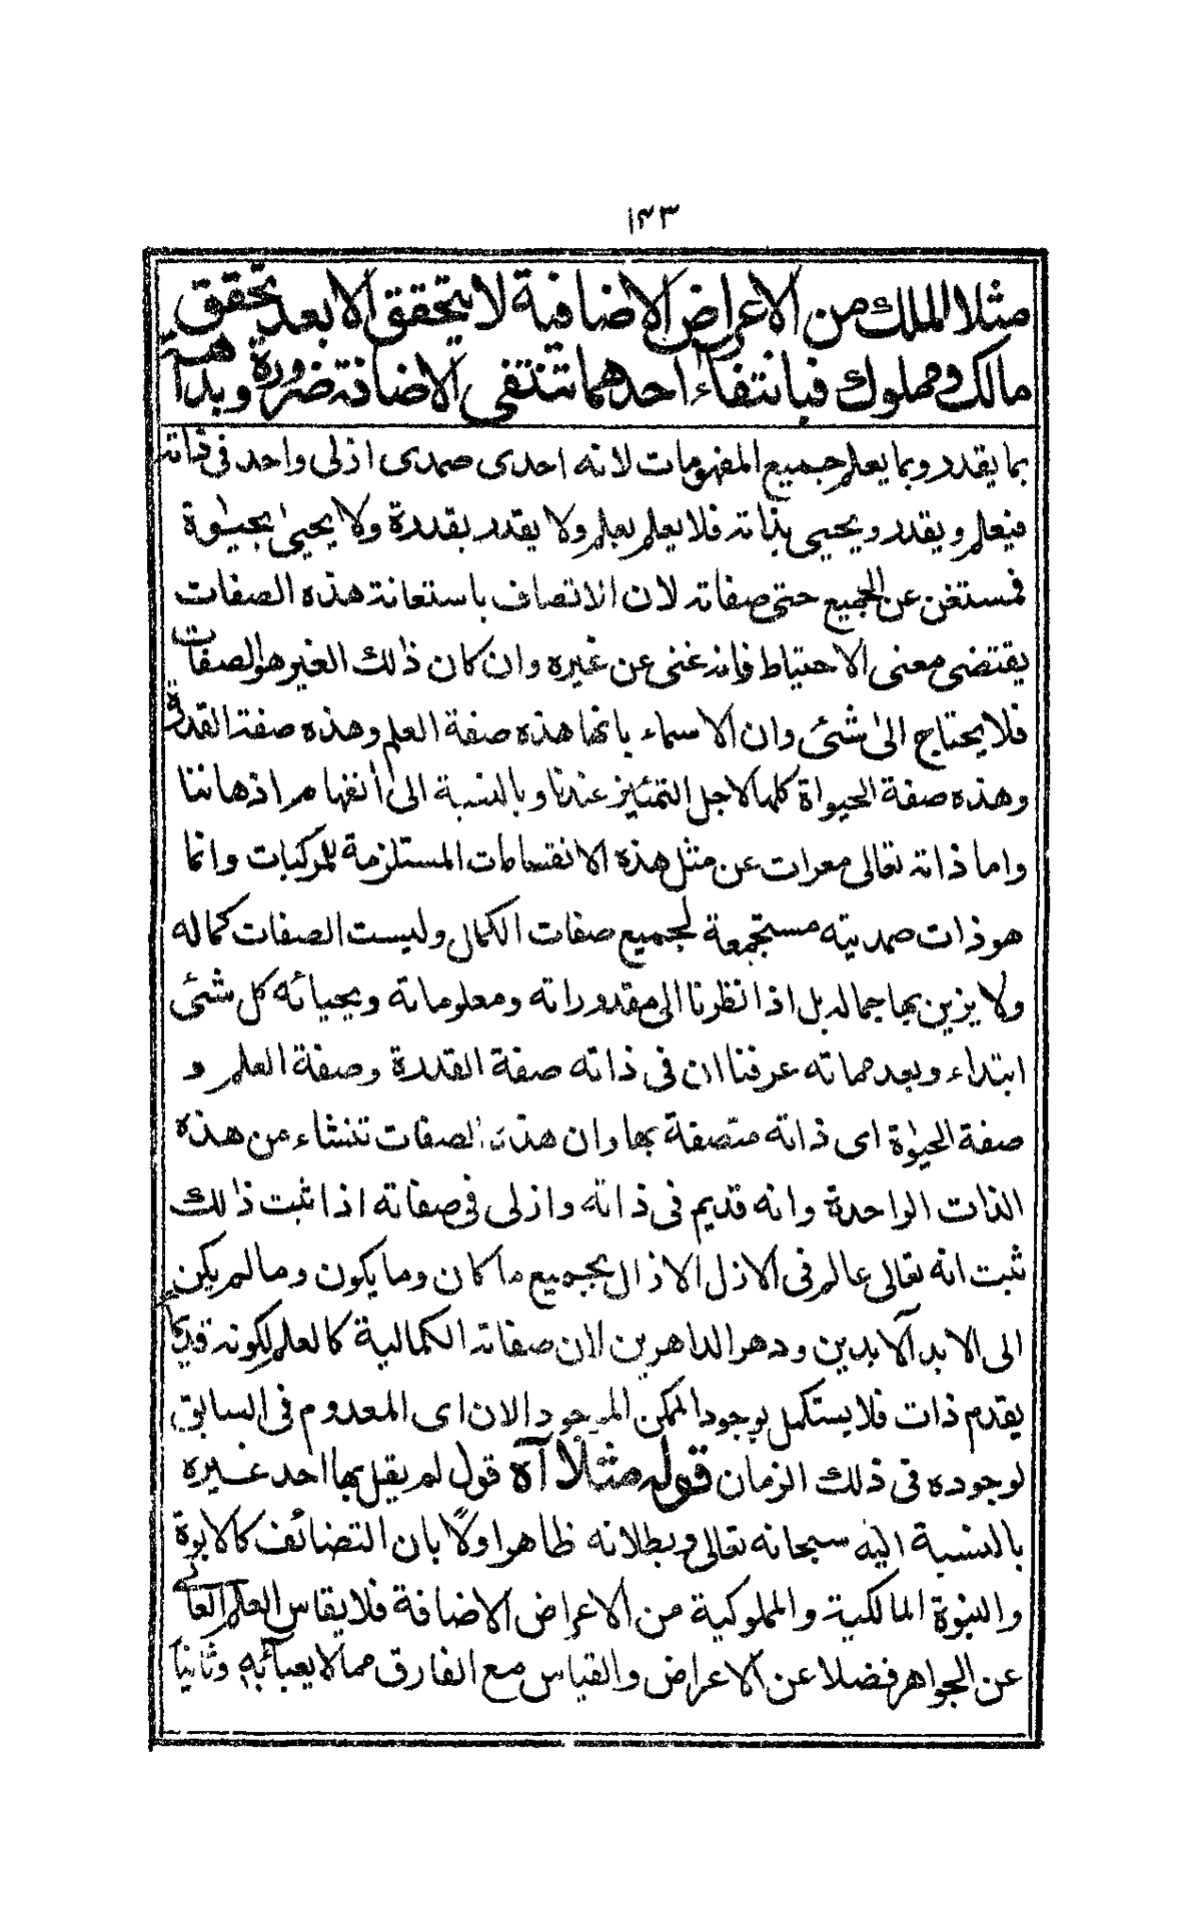 ١٤٣
مثلا الملك من الاعراض الاضافية لا يتحقق الا بعد تحقق
مالك ومملوك فبانتفاء احدهما تنتفى الاضافة ضرورة وبدآهة
بما يقدر وبما يعلم جميع المفهومات لانه احدى صمدى ازلى واحد فى ذاته
فيعلم ويقدر ويحيى بذاته فلا يعلم بعلم ولا يقدر بقدرة ولا يحيى بحيوٰة
فمستغن عن الجميع حتى صفاته لان الاتصاف باستعانة هذه الصفات
يقتضى معنى الاحتياط فانه غنى عن غيره وان كان ذلك الغير هو الصفات
فلا يحتاج الى شئى وان الاسماء بانها هذه صفة العلم وهذه صفة القدرة
وهذه صفة الحيواة كلها لاجل التمئيز عندنا وبالنسبة الى أنفهام اذهاننا
واما ذاته تعالى معرات عن مثل هذه الانقسامات المستلزمة للمركبات وانما
هو ذات صمديته مستجمعة لجميع صفات الكمال وليست الصفات كماله
ولا يزين بها جماله بل اذا نظرنا الى مقدوراته ومعلوماته ويحيائه كل شئى
ابتداء وبعد مماته عرفنا ان فى ذاته صفة القدرة وصفة العلم و
صفة الحيوٰة اى ذاته متصفة بها وان هذه الصفات تنشاء من هذه
الذات الواحدة وانه قديم فى ذاته وازلى فى صفاته اذا ثبت ذلك
ثبت انه تعالى عالم فى الازل الازال بجميع ما كان وما يكون وما لم يكن
الى الابد آلابدين ودهر الداهرين الان صفاته الكمالية كالعلم لكونه قديما
يقدم ذات فلا يستكمل بوجود الممكن الموجود الان اى المعدوم فى السابق
لوجوده فى ذلك الزمان قوله مثلا آه قول لم يقل بها احد غيره
بالنسبة اليه سبحانه تعالى وبطلانه ظاهر اولًا بان التضائف كالابوة
والبنوة المالكية والمملوكية من الاعراض الاضافة فلا يقاس العلم العالى
عن الجواهر فضلا عن الاعراض والقياس مع الفارق مما لا يعبأ به وثانيا